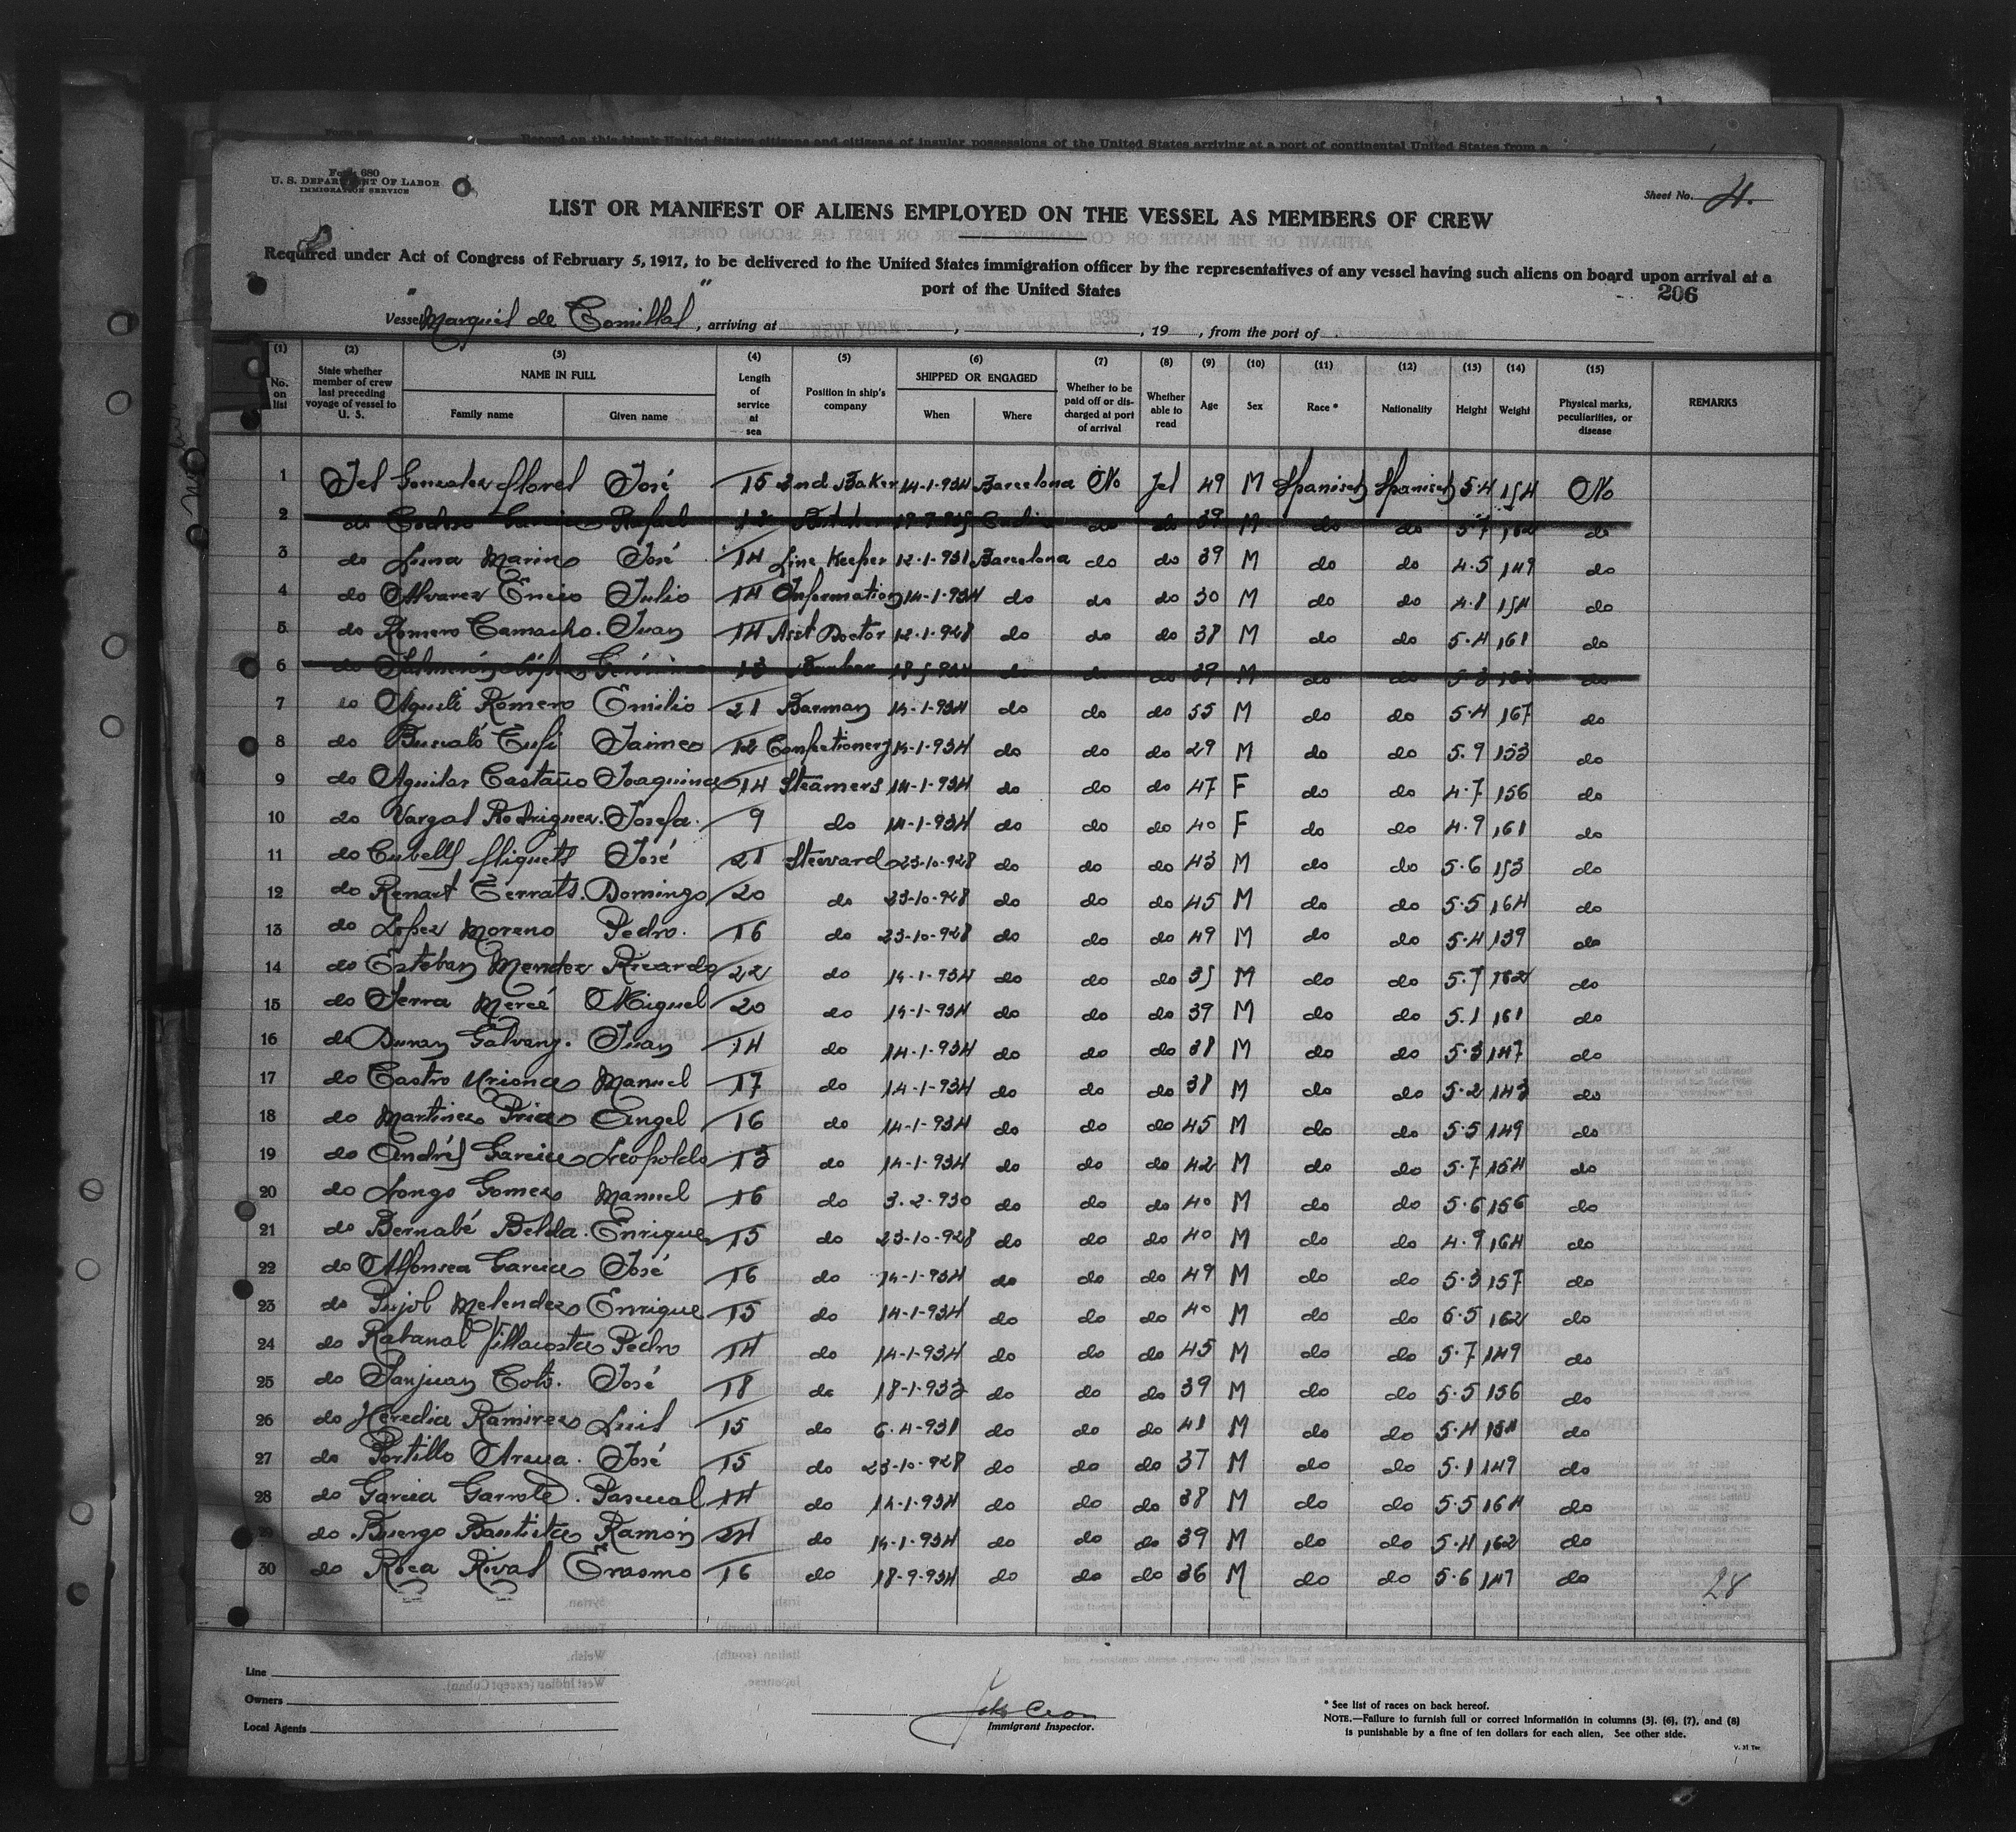 Record on this blank United States citizens and citizens of insular possessions of the United States arriving at a port of continental United States from a
Form 680
U. S. DEPARTMENT OF LABOR
IMMIGRATION SERVICE
Sheet No. 4.
LIST OR MANIFEST OF ALIENS EMPLOYED ON THE VESSEL AS MEMBERS OF CREW
Required under Act of Congress of February 5, 1917, to be delivered to the United States immigration officer by the representatives of any vessel having such aliens on board upon arrival at a
port of the United States
206
Vessel "Marqués de Comillas", arriving at , , 19 , from the port of
(1) (2) (3) (4) (5) (6) (7) (8) (9) (10) (11) (12) (13) (14) (15)
No. on list State whether member of crew last preceding voyage of vessel to U. S. NAME IN FULL Family name Given name Length of service at sea Position in ship's company SHIPPED OR ENGAGED When Where Whether to be paid off or discharged at port of arrival Whether able to read Age Sex Race * Nationality Height Weight Physical marks, peculiarities, or disease REMARKS
1 Yes Gonzalez Llores José 15 2nd Baker 14-1-934 Barcelona No Yes 49 M Spanish Spanish 5.4 154 No
2 do Garcia Rafael 12 Butcher Cadiz do do 39 M do do 5.7 162 do
3 do Luna Marin José 14 Line Keeper 12-1-931 Barcelona do do 39 M do do 4.5 149 do
4 do Alvarez Encio Julio 14 Information 14-1-934 do do do 30 M do do 4.8 154 do
5 do Romero Camacho. Juan 14 Asst Doctor 12-1-928 do do do 38 M do do 5.4 161 do
6 do López 13 do do do 39 M do do 5.3 do
7 do Agusti Romero Emilio 21 Barman 14-1-934 do do do 55 M do do 5.4 167 do
8 do Jaime 12 Confectionery 14-1-934 do do do 29 M do do 5.9 153 do
9 do Aguilar Castaño Joaquina 14 Steamers 14-1-934 do do do 47 F do do 4.7 156 do
10 do Vargas Rodriguez. Josefa. 9 do 14-1-934 do do do 40 F do do 4.9 161 do
11 do Cubells Miquets José 21 Steward 23-10-928 do do do 43 M do do 5.6 153 do
12 do Renart Serrats. Domingo 20 do 23-10-928 do do do 45 M do do 5.5 164 do
13 do Lopez Moreno Pedro. 16 do 23-10-928 do do do 49 M do do 5.4 139 do
14 do Esteban Mendez Ricardo 22 do 14-1-934 do do do 35 M do do 5.7 162 do
15 do Serra Mercé Miguel 20 do 14-1-934 do do do 39 M do do 5.1 161 do
16 do Duran Galvany. Juan 14 do 14-1-934 do do do 38 M do do 5.3 147 do
17 do Castro Urionа Manuel 17 do 14-1-934 do do do 38 M do do 5.2 143 do
18 do Martinez Pria Angel 16 do 14-1-934 do do do 45 M do do 5.5 149 do
19 do Andrés Garcia Leopoldo 13 do 14-1-934 do do do 42 M do do 5.7 154 do
20 do Longo Gomez Manuel 16 do 3-2-930 do do do 40 M do do 5.6 156 do
21 do Bernabé Belda. Enrique 15 do 23-10-928 do do do 40 M do do 4.9 164 do
22 do Alfonsea Garcia José 16 do 14-1-934 do do do 49 M do do 5.3 157 do
23 do Pujol Melendez Enrique 15 do 14-1-934 do do do 40 M do do 6.5 162 do
24 do Rabanal Villacosta Pedro 14 do 14-1-934 do do do 45 M do do 5.7 149 do
25 do Sanjuan Cots. José 18 do 18-1-933 do do do 39 M do do 5.5 156 do
26 do Heredia Ramirez Luis 15 do 6-4-931 do do do 41 M do do 5.4 154 do
27 do Portillo José 15 do 23-10-928 do do do 37 M do do 5.1 149 do
28 do Garcia Garrote. Pascual 14 do 14-1-934 do do do 38 M do do 5.5 164 do
29 do Buergo Bautista Ramón 24 do 14-1-934 do do do 39 M do do 5.4 162 do
30 do Roca Rivas Erasmo 16 do 18-9-934 do do do 36 M do do 5.6 147 do
28
Line
Owners
Local Agents
Immigrant Inspector.
* See list of races on back hereof.
NOTE.—Failure to furnish full or correct information in columns (3), (6), (7), and (8)
is punishable by a fine of ten dollars for each alien. See other side.